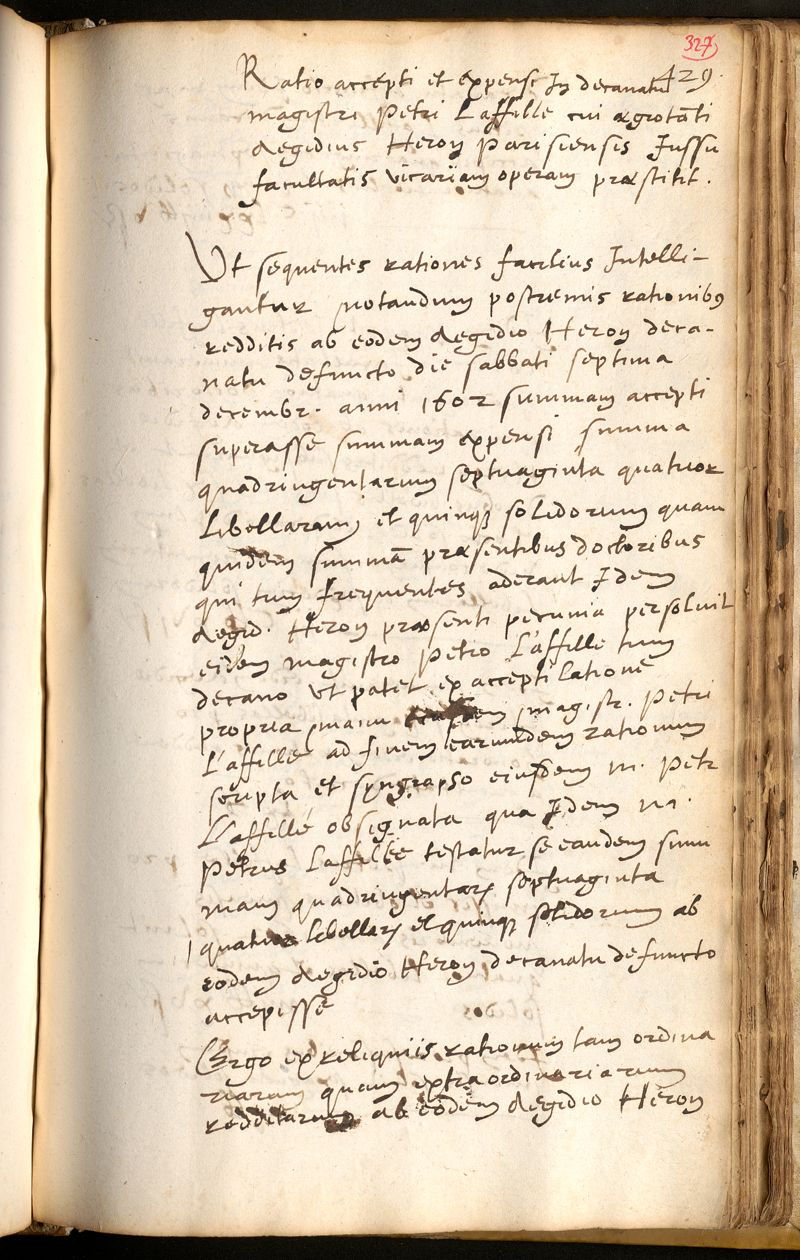 327
429.
Ratio accepti et expensi In decanatu
magistri Petri Laffille cui ægrotāti
Aegidius Heron Parisiensis Jussu
facultatis vicariam operam præstitit.
Ut sequentes rationes facilius Intelli-
gantur notandum postremis rationibus
redditis ab eodem Aegidio Heron deca-
natu defuncto die sabbati septima
decembr. anni 1602 summam accepti
superasse summam expensi summa
quadringentarum septuaginta quatuor
Libellarum et quinque solidorum quam
quidem summā præsentibus doctoribus
qui tum frequentes aderant Idem
Aegid. Heron præsenti pecunia persolvit
eidem magistro Petro L'affille tum
decano ut patet ex acceptilatione
propria manu magistr. Petri
L'affille ad finem earumdem rationum
scripta et syngrapso eiusdem m. Petr
L'affille obsignata qua Idem m.
Petrus Laffille testatur se eandem sum
mam quadringentarum septuaginta
quatuor libellarum et quinque solidorum ab
eodem Aegidio Heron decanatu defuncto
accepisse
Ergo ex reliquiis rationum tam ordina
riarum quam extraordinariarum
redditarum ab eodem Aegidio Heron